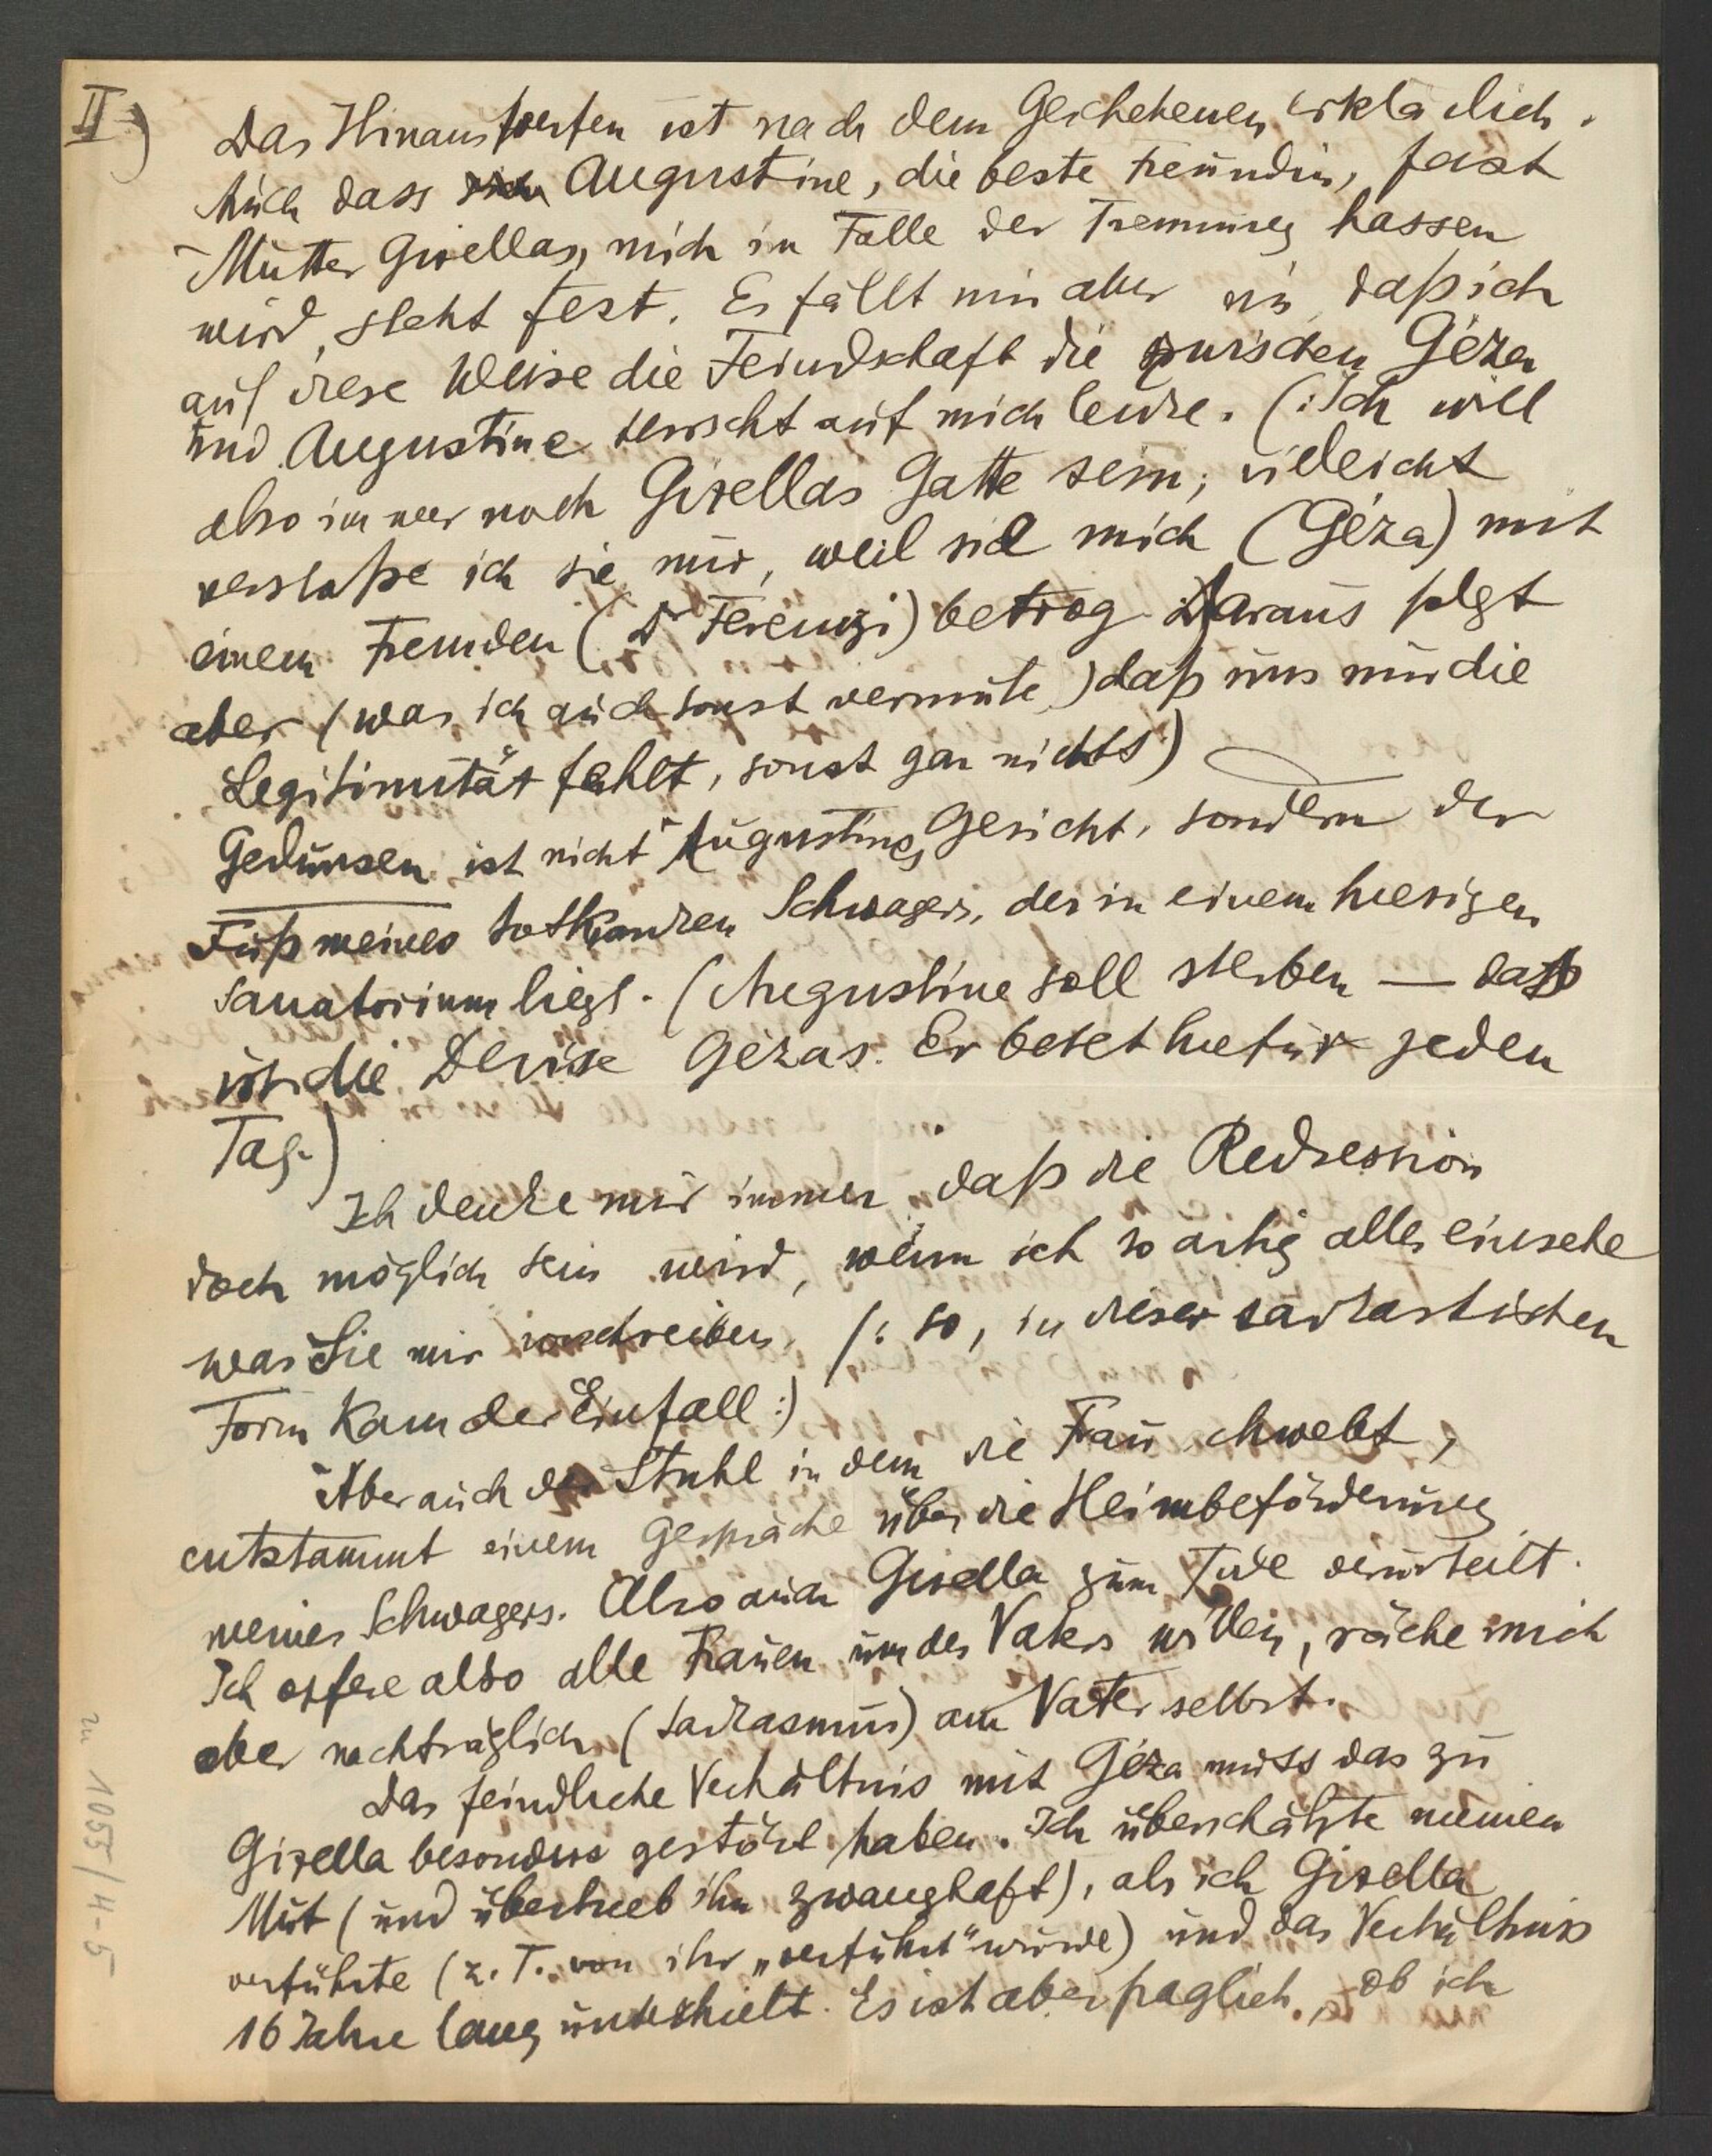 II.)
Das Hinauswerfen ist nach dem Geschehenen erklärlich.
Auch dass Augustine, die beste Freundin, fast
Mutter Gisellas, mich im Falle der Trennung hassen
wird, steht fest. Es fällt mir aber ein, daß ich
auf diese Weise die Feindschaft die zwischen Géza
und Augustine herrscht auf mich lenke. (: Ich will
also immer noch Gizellas Gatte sein; vielleicht
verstoße ich sie nur, weil sie mich (Géza) mit
einem Fremden (Dr Ferenczi) betrog. Daraus folgt
aber (was ich auch sonst vermute) daß uns nur die
Legitimität fehlt, sonst gar nichts)
Gedunsen ist nicht Augustines Gesicht, sondern der
Fuß meines totkranken Schwagers, der in einem hiesigen
Sanatorium liegt. (Augustine soll sterben — das
ist die Devise Gézas. Er betet hiefür jeden
Tag.)
Ich denke mir immer, daß die Redression
doch möglich sein wird, wenn ich so artig alles einsehe
was Sie mir vorschreiben. (: so, in dieser sarkastischen
Form kam der Einfall :)
Aber auch der Stuhl in dem die Frau schwebt,
entstammt einem Gespräche über die Heimbeförderung
meines Schwagers. Also auch Gisella zum Tode verurteilt.
Ich opfere also alle Frauen um des Vaters willen, räche mich
aber nachträglich (Sarkasmus) am Vater selbst.
Das feindliche Verhältnis mit Géza muss das zu
Gizella besonders gestört haben. Ich überschätzte meinen
Mut (und übertrieb ihn zwanghaft), als ich Gizella
verführte (z. T. von ihr „verführt" wurde) und das Verhältnis
16 Jahre lang unterhielt. Es ist aber fraglich, ob ich
zu 1055/4-5